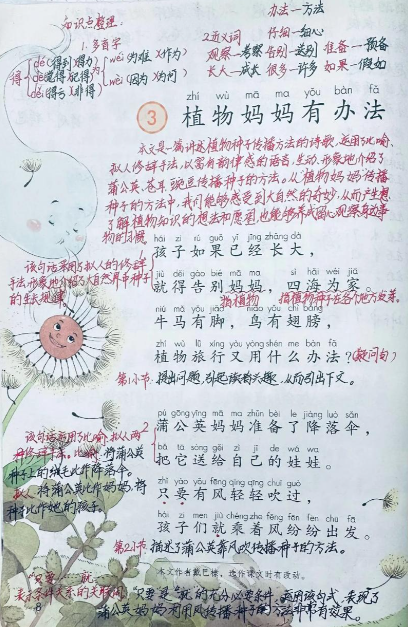 知识点整理:
办法—方法
仔细—细心
1.多音字
2.近义词
得 dé(得到)(得力) 为 wéi(为难)(作为)
观察—考察 告别—送别 准备—预备
de(觉得)(记得) wèi(因为)(为何)
děi(得亏)(非得)
长大—成长 很多—许多 如果—假如
zhí wù mā ma yǒu bàn fǎ
3 植物妈妈有办法
本文是一篇讲述植物种子传播方法的诗歌,运用了比喻、
拟人修辞手法,以富有韵律感的语言,生动、形象地介绍了
蒲公英、苍耳、豌豆传播种子的方法。从植物妈妈传播
种子的方法中,我们能够感受到大自然的奇妙,从而产生想
了解植物知识的想法和愿望,也能够养成细心观察身边事
物的习惯
hái zi rú guǒ yǐ jīng zhǎng dà
孩子如果已经长大,
该句话采用了拟人的修辞
手法,形象地介绍了大自然界中种子
的生长规律
jiù děi gào bié mā ma sì hǎi wéi jiā
就得告别妈妈,四海为家。
指植物 指植物种子在各个地方发芽。
niú mǎ yǒu jiǎo niǎo yǒu chì bǎng
牛马有脚,鸟有翅膀,
zhí wù lǚ xíng yòu yòng shén me bàn fǎ
植物旅行又用什么办法?(疑问句)
第1小节:提出问题,引起读者兴趣,从而引出下文。
pú gōng yīng mā ma zhǔn bèi le jiàng luò sǎn
蒲公英妈妈准备了降落伞,
该句话运用了比喻、拟人两
种修辞手法。比喻:将蒲公英
种子上的绒毛比作降落伞。
bǎ tā sòng gěi zì jǐ de wá wa
把它送给自己的娃娃。
拟人:将蒲公英比作妈妈,将
种子比作她的孩子。
zhǐ yào yǒu fēng qīng qīng chuī guò
只要有风轻轻吹过,
hái zi men jiù chéng zhe fēng fēn fēn chū fā
孩子们就乘着风纷纷出发。
第2小节:描述了蒲公英靠风吹传播种子的方法。
本文作者戴巴棣,选作课文时有改动。
“只要……就……”
表示条件关系的关联词,“只要”是“就”的充分必要条件,运用该句式,表现了
蒲公英妈妈利用风传播种子的方法非常有效果。
8